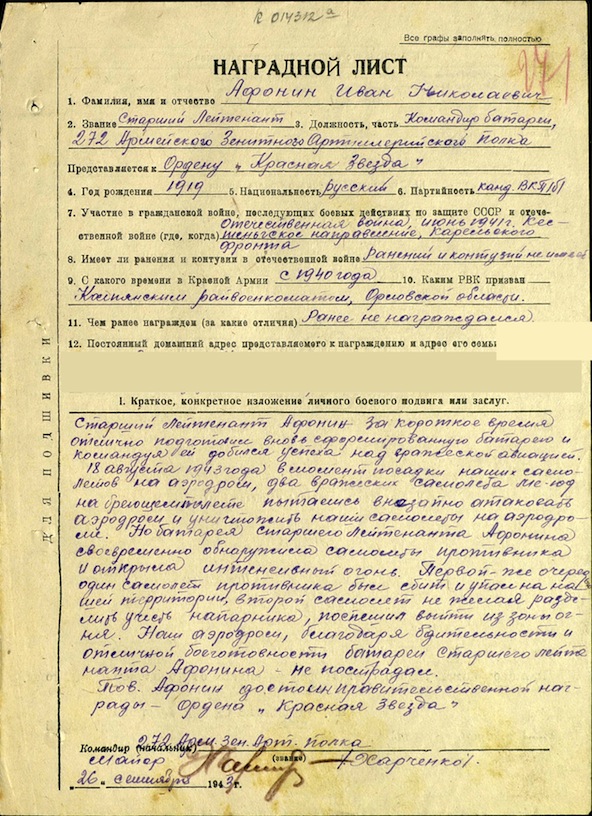 К 014312а
Все графы заполнять полностью
271
НАГРАДНОЙ ЛИСТ
1. Фамилия, имя и отчество Афонин Иван Николаевич
2. Звание Старший Лейтенант 3. Должность, часть Командир батареи,
272 Армейского Зенитного Артиллерийского Полка
Представляется к Ордену „Красная Звезда"
4. Год рождения 1919 5. Национальность русский 6. Партийность канд. ВКП/б/
7. Участие в гражданской войне, последующих боевых действиях по защите СССР и отече-
ственной войне (где, когда) Отечественная война, июнь 1941 г. Кес-
теньгское направление, Карельского
фронта
8. Имеет ли ранения и контузии в отечественной войне Ранений и контузий не имеет
9. С какого времени в Красной Армии с 1940 года 10. Каким РВК призван
райвоенкоматом, Орловской области.
11. Чем ранее награжден (за какие отличия) Ранее не награждался.
12. Постоянный домашний адрес представляемого к награждению и адрес его семьи
ДЛЯ ПОДШИВКИ
I. Краткое, конкретное изложение личного боевого подвига или заслуг.
Старший Лейтенант Афонин за короткое время
отлично подготовил вновь сформированную батарею и
командуя ей добился успеха над вражеской авиацией.
18 августа 1943 года в момент посадки наших само-
летов на аэродром, два вражеских самолета ме-109
на бреющем полете пытались внезапно атаковать
аэродром и уничтожить наши самолеты на аэродро-
ме. Но батарея старшего Лейтенанта Афонина
своевременно обнаружила самолеты противника
и открыла интенсивный огонь. Первой-же очередью
один самолет противника был сбит и упал на на-
шей территории, второй самолет не желая разде-
лить участь напарника, поспешил выйти из зоны ог-
ня. Наш аэродром, благодаря бдительности и
отличной боеготовности батареи Старшего лейте-
нанта Афонина - не пострадал.
Тов. Афонин достоин правительственной наг-
рады - Ордена „Красная Звезда"
Командир (начальник) 272 Арм. Зен. Арт. полка
Майор (звание) /Харченко/.
„26" сентября 1943 г.